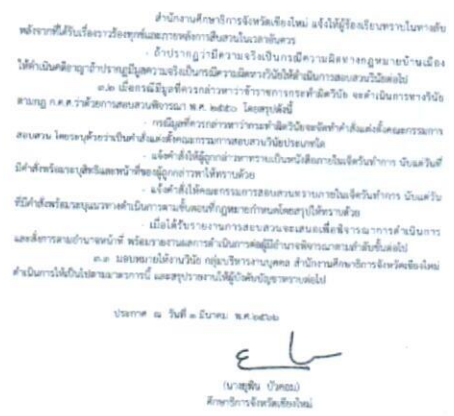 สำนักงานศึกษาธิการจังหวัดเชียงใหม่ แจ้งให้ผู้ร้องเรียนทราบในทางลับ
หลังจากที่ได้รับเรื่องราวร้องทุกข์และภายหลังการสืบสวนในเวลาอันควร
- ถ้าปรากฏว่ามีความจริงเป็นกรณีความผิดทางกฎหมายบ้านเมือง
ให้ดำเนินคดีอาญาถ้าปรากฏมีมูลความจริงเป็นกรณีความผิดทางวินัยให้ดำเนินการสอบสวนวินัยต่อไป
๓.๒ เมื่อกรณีมีมูลที่ควรกล่าวหาว่าข้าราชการกระทำผิดวินัย จะดำเนินการทางวินัย
ตามกฎ ก.ค.ศ.ว่าด้วยการสอบสวนพิจารณา พ.ศ. ๒๕๕๐ โดยสรุปดังนี้
- กรณีมูลที่ควรกล่าวหาว่ากระทำผิดวินัยจะจัดทำคำสั่งแต่งตั้งคณะกรรมการ
สอบสวน โดยระบุด้วยว่าเป็นคำสั่งแต่งตั้งคณะกรรมการสอบสวนวินัยประเภทใด
- แจ้งคำสั่งให้ผู้ถูกกล่าวหาทราบเป็นหนังสือภายในเจ็ดวันทำการ นับแต่วันที่
มีคำสั่งพร้อมระบุสิทธิและหน้าที่ของผู้ถูกกล่าวหาให้ทราบด้วย
- แจ้งคำสั่งให้คณะกรรมการสอบสวนทราบภายในเจ็ดวันทำการ นับแต่วัน
ที่มีคำสั่งพร้อมระบุแนวทางดำเนินการตามขั้นตอนที่กฎหมายกำหนดโดยสรุปให้ทราบด้วย
- เมื่อได้รับรายงานการสอบสวนจะเสนอเพื่อพิจารณาการดำเนินการ
และสั่งการตามอำนาจหน้าที่ พร้อมรายงานผลการดำเนินการต่อผู้มีอำนาจพิจารณาตามลำดับขั้นต่อไป
๓.๓ มอบหมายให้งานวินัย กลุ่มบริหารงานบุคคล สำนักงานศึกษาธิการจังหวัดเชียงใหม่
ดำเนินการให้เป็นไปตามมาตรการนี้ และสรุปรายงานให้ผู้บังคับบัญชาทราบต่อไป
ประกาศ ณ วันที่ ๑ มีนาคม พ.ศ.๒๕๖๒
(นางยุพิน บัวคอม)
ศึกษาธิการจังหวัดเชียงใหม่